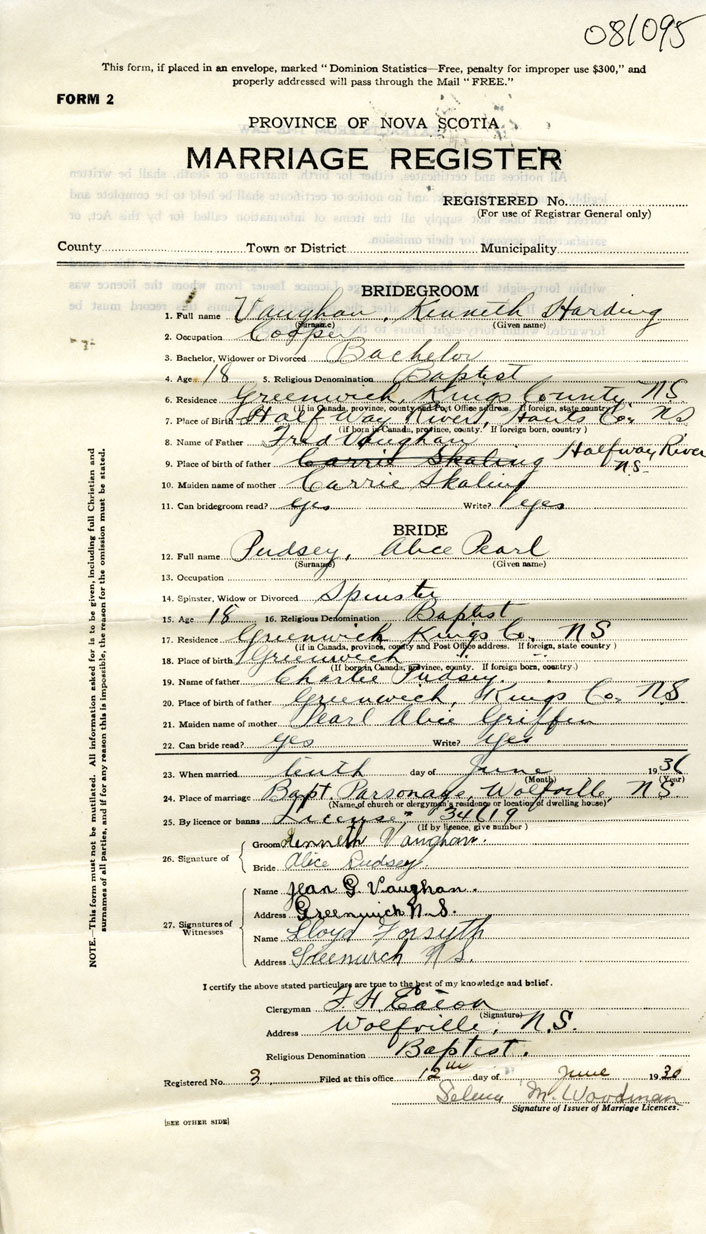 081095
This form, if placed in an envelope, marked "Dominion Statistics—Free, penalty for improper use $300," and
properly addressed will pass through the Mail "FREE."
FORM 2
PROVINCE OF NOVA SCOTIA
MARRIAGE REGISTER
REGISTERED No.
(For use of Registrar General only)
County Town or District Municipality
BRIDEGROOM
1. Full name Vaughan, Kenneth Harding
(Surname) (Given name)
2. Occupation Cooper
3. Bachelor, Widower or Divorced Bachelor
4. Age 18 5. Religious Denomination Baptist
6. Residence Greenwich, Kings County, NS
(if in Canada, province, county and Post Office address. If foreign, state country)
7. Place of Birth Half Way River, Hants Co. NS
(if born in Canada, province, county. If foreign born, country)
8. Name of Father Fred Vaughan
9. Place of birth of father Carrie Skaling Halfway River
N.S.
10. Maiden name of mother Carrie Skaling
11. Can bridegroom read? yes Write? yes
BRIDE
12. Full name Pudsey, Alice Pearl
(Surname) (Given name)
13. Occupation
14. Spinster, Widow or Divorced Spinster
15. Age 18 16. Religious Denomination Baptist
17. Residence Greenwich, Kings Co. NS
(if in Canada, province, county and Post Office address. If foreign, state country)
18. Place of birth Greenwich
(If born in Canada, province, county. If foreign born, country.)
19. Name of father Charlie Pudsey
20. Place of birth of father Greenwich, Kings Co. NS
21. Maiden name of mother Pearl Alice Griffin
22. Can bride read? yes Write? yes
23. When married tenth day of June 19
(Month) (Year)
24. Place of marriage Bapt. Parsonage, Wolfville, NS.
(Name of church or clergyman's residence or location of dwelling house)
25. By licence or banns License "34619"
(If by licence, give number)
26. Signature of
Groom Kenneth Vaughan.
Bride Alice Pudsey
27. Signatures of
Witnesses
Name Jean G. Vaughan.
Address Greenwich N.S.
Name Lloyd Forsyth
Address Greenwich N.S.
I certify the above stated particulars are true to the best of my knowledge and belief.
Clergyman Eaton
(Signature)
Address Wolfville, N.S.
Religious Denomination Baptist.
Registered No. 3 Filed at this office 12th day of June 19
Selena M. Woodman
Signature of Issuer of Marriage Licences.
[SEE OTHER SIDE]
NOTE.—This form must not be mutilated. All information asked for is to be given, including full Christian and
surnames of all parties, and if for any reason this is impossible, the reason for the omission must be stated.